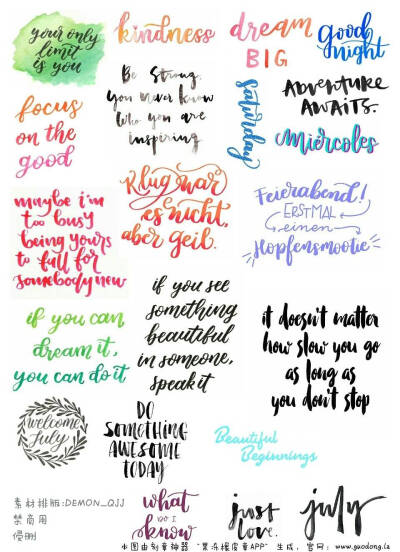 your only
limit
is you
kindness
dream
BIG
good
night
Be Strong.
You never know
who you are
inspiring
Saturday
ADVENTURE
AWAITS.
miércoles
focus
on the
good
Klug war
es nicht,
aber geil.
Feierabend!
ERSTMAL
einen
Hopfensmootie
maybe i'm
too busy
being yours
to fall for
somebody new
if you see
something
beautiful
in someone,
speak it
if you can
dream it,
you can do it
it doesn't matter
how slow you go
as long as
you don't stop
welcome
July
DO
SOMETHING
AWESOME
TODAY
Beautiful
Beginnings
素材排版:DEMON_QJJ
禁商用
侵删
what
DO I
know
just
love.
july
小图由刻章神器“果冻橡皮章APP”生成，官网：www.guodong.la